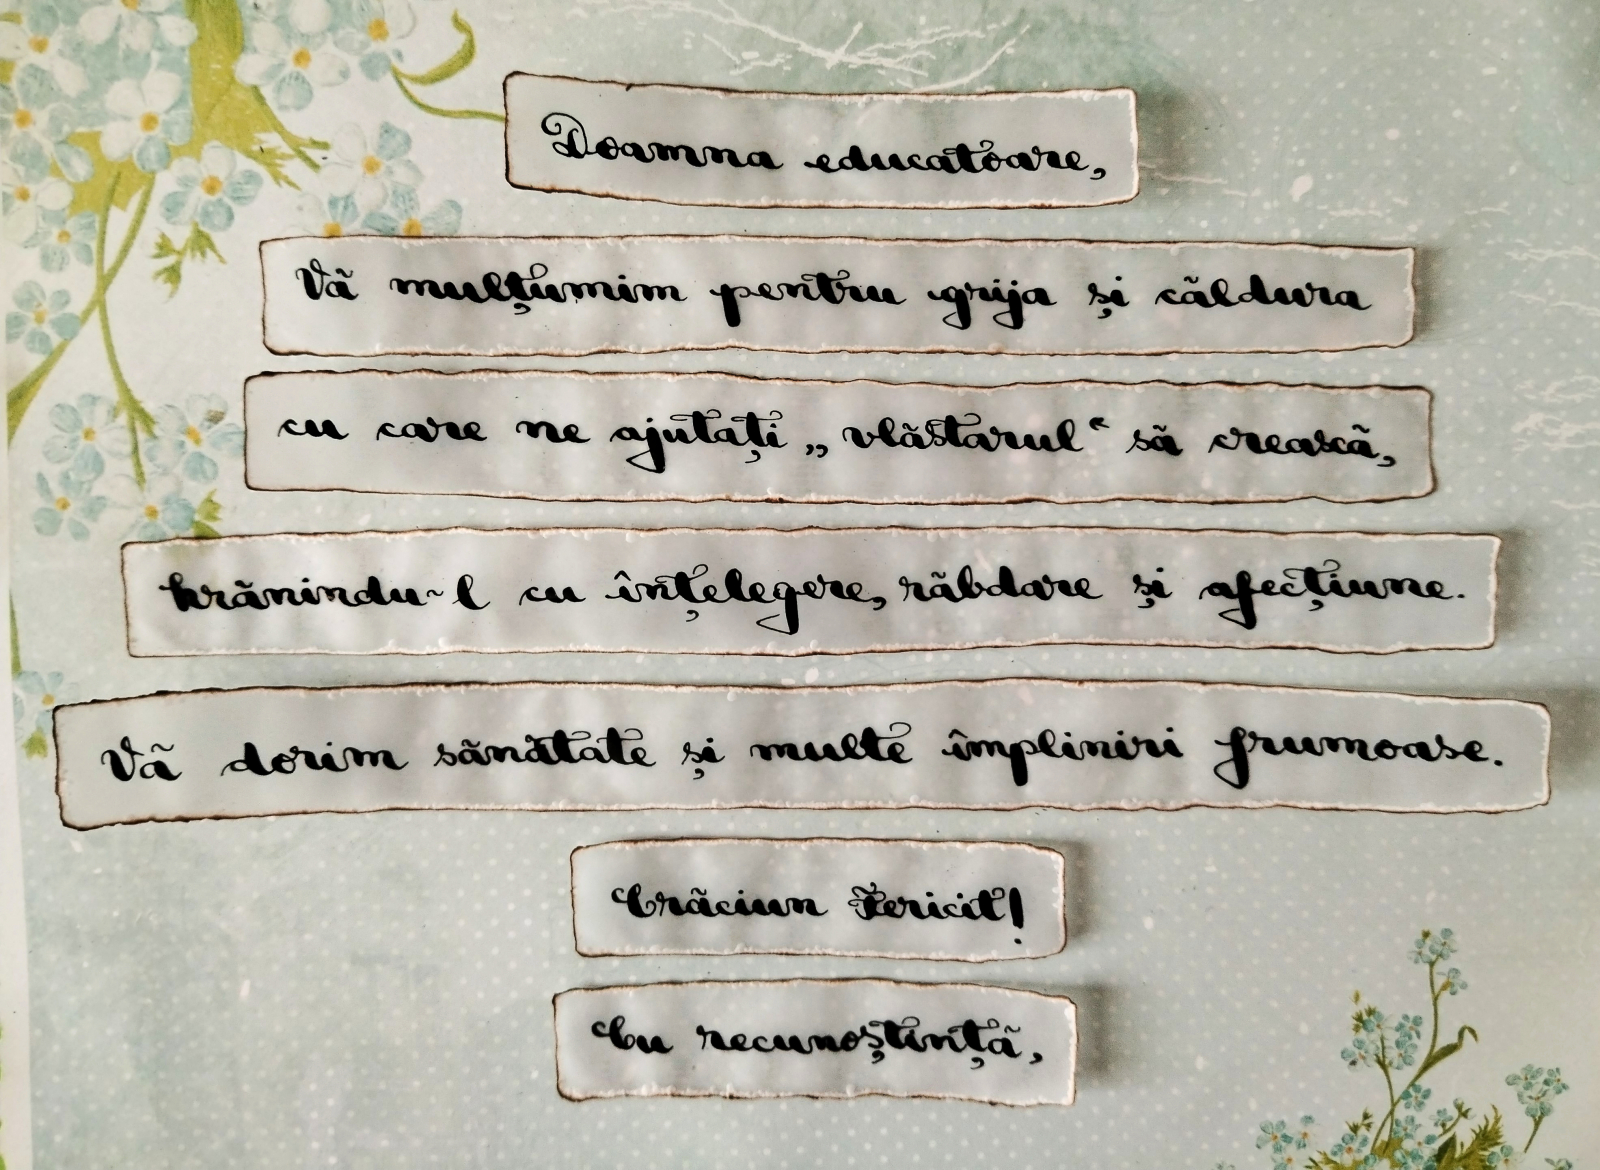 Doamna educatoare,
Vă mulțumim pentru grija și căldura
cu care ne ajutați „vlăstarul“ să crească,
hrănindu-l cu înțelegere, răbdare și afecțiune.
Vă dorim sănătate și multe împliniri frumoase.
Crăciun Fericit!
Cu recunoștință,